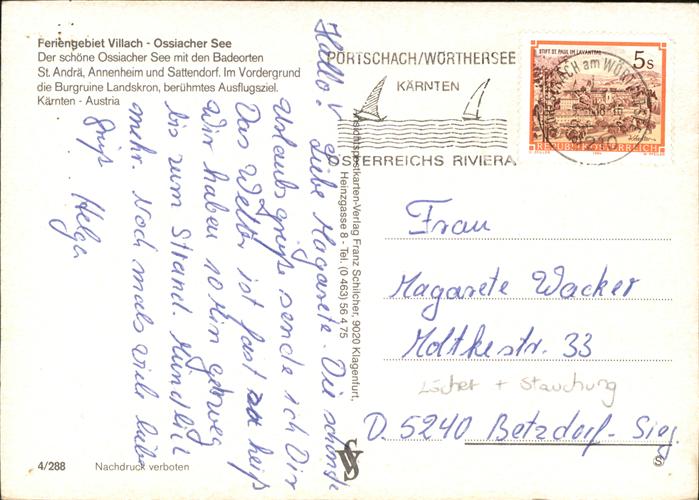 Feriengebiet Villach - Ossiacher See
Der schöne Ossiacher See mit den Badeorten
St. Andrä, Annenheim und Sattendorf. Im Vordergrund
die Burgruine Landskron, berühmtes Ausflugsziel.
Kärnten - Austria
Hallo! Liebe Magarete. Die schönste
Urlaubsgrüße sende ich Dir
Das Wetter ist fast heiß
Wir haben 10 Min gehweg
bis zum Strand. Mündlich
mehr. Noch mals viele liebe
Grüß Helga
Ansichtspostkarten-Verlag Franz Schilcher, 9020 Klagenfurt,
Heinzgasse 8 - Tel. (0 463) 56 4 75
PÖRTSCHACH/WÖRTHERSEE
KÄRNTEN
ÖSTERREICHS RIVIERA
STIFT ST. PAUL IM LAVANTTAL
5 S
REPUBLIK ÖSTERREICH
Frau
Magarete Wacker
Moltkestr. 33
Löcher + Stauchung
D. 5240 Betzdorf-Sieg
4/288 Nachdruck verboten